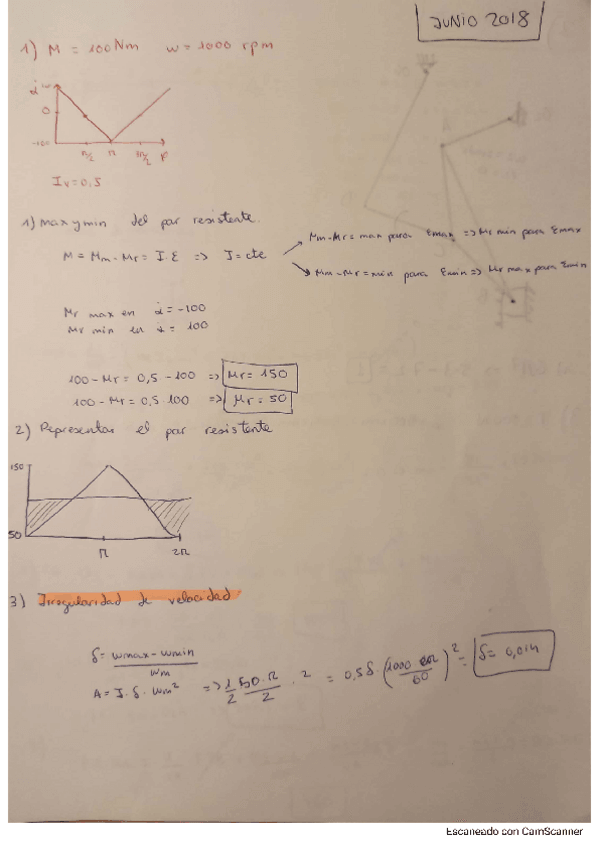 JUNIO 2018
1) M = 100Nm   w = 1000 rpm
0
-100
π/2   π   3π/2   φ
Iv = 0,5
1) max y min del par resistente.
M = Mm - Mr = I·ε => I = cte
Mm-Mr = max para εmax => Mr min para εmax
Mm-Mr = min para εmin => Mr max para εmin
Mr max en α̇ = -100
Mr min en α̇ = 100
100 - Mr = 0,5 · -100 => Mr = 150
100 - Mr = 0,5 · 100 => Mr = 50
2) Representar el par resistente
150
50
π   2π
3) Irregularidad de velocidad
δ = wmax - wmin / wm
A = I · δ · wm² => 1/2 50·π/2 · 2 = 0,5δ · (1000·2π/60)² = δ = 0,014
Escaneado con CamScanner